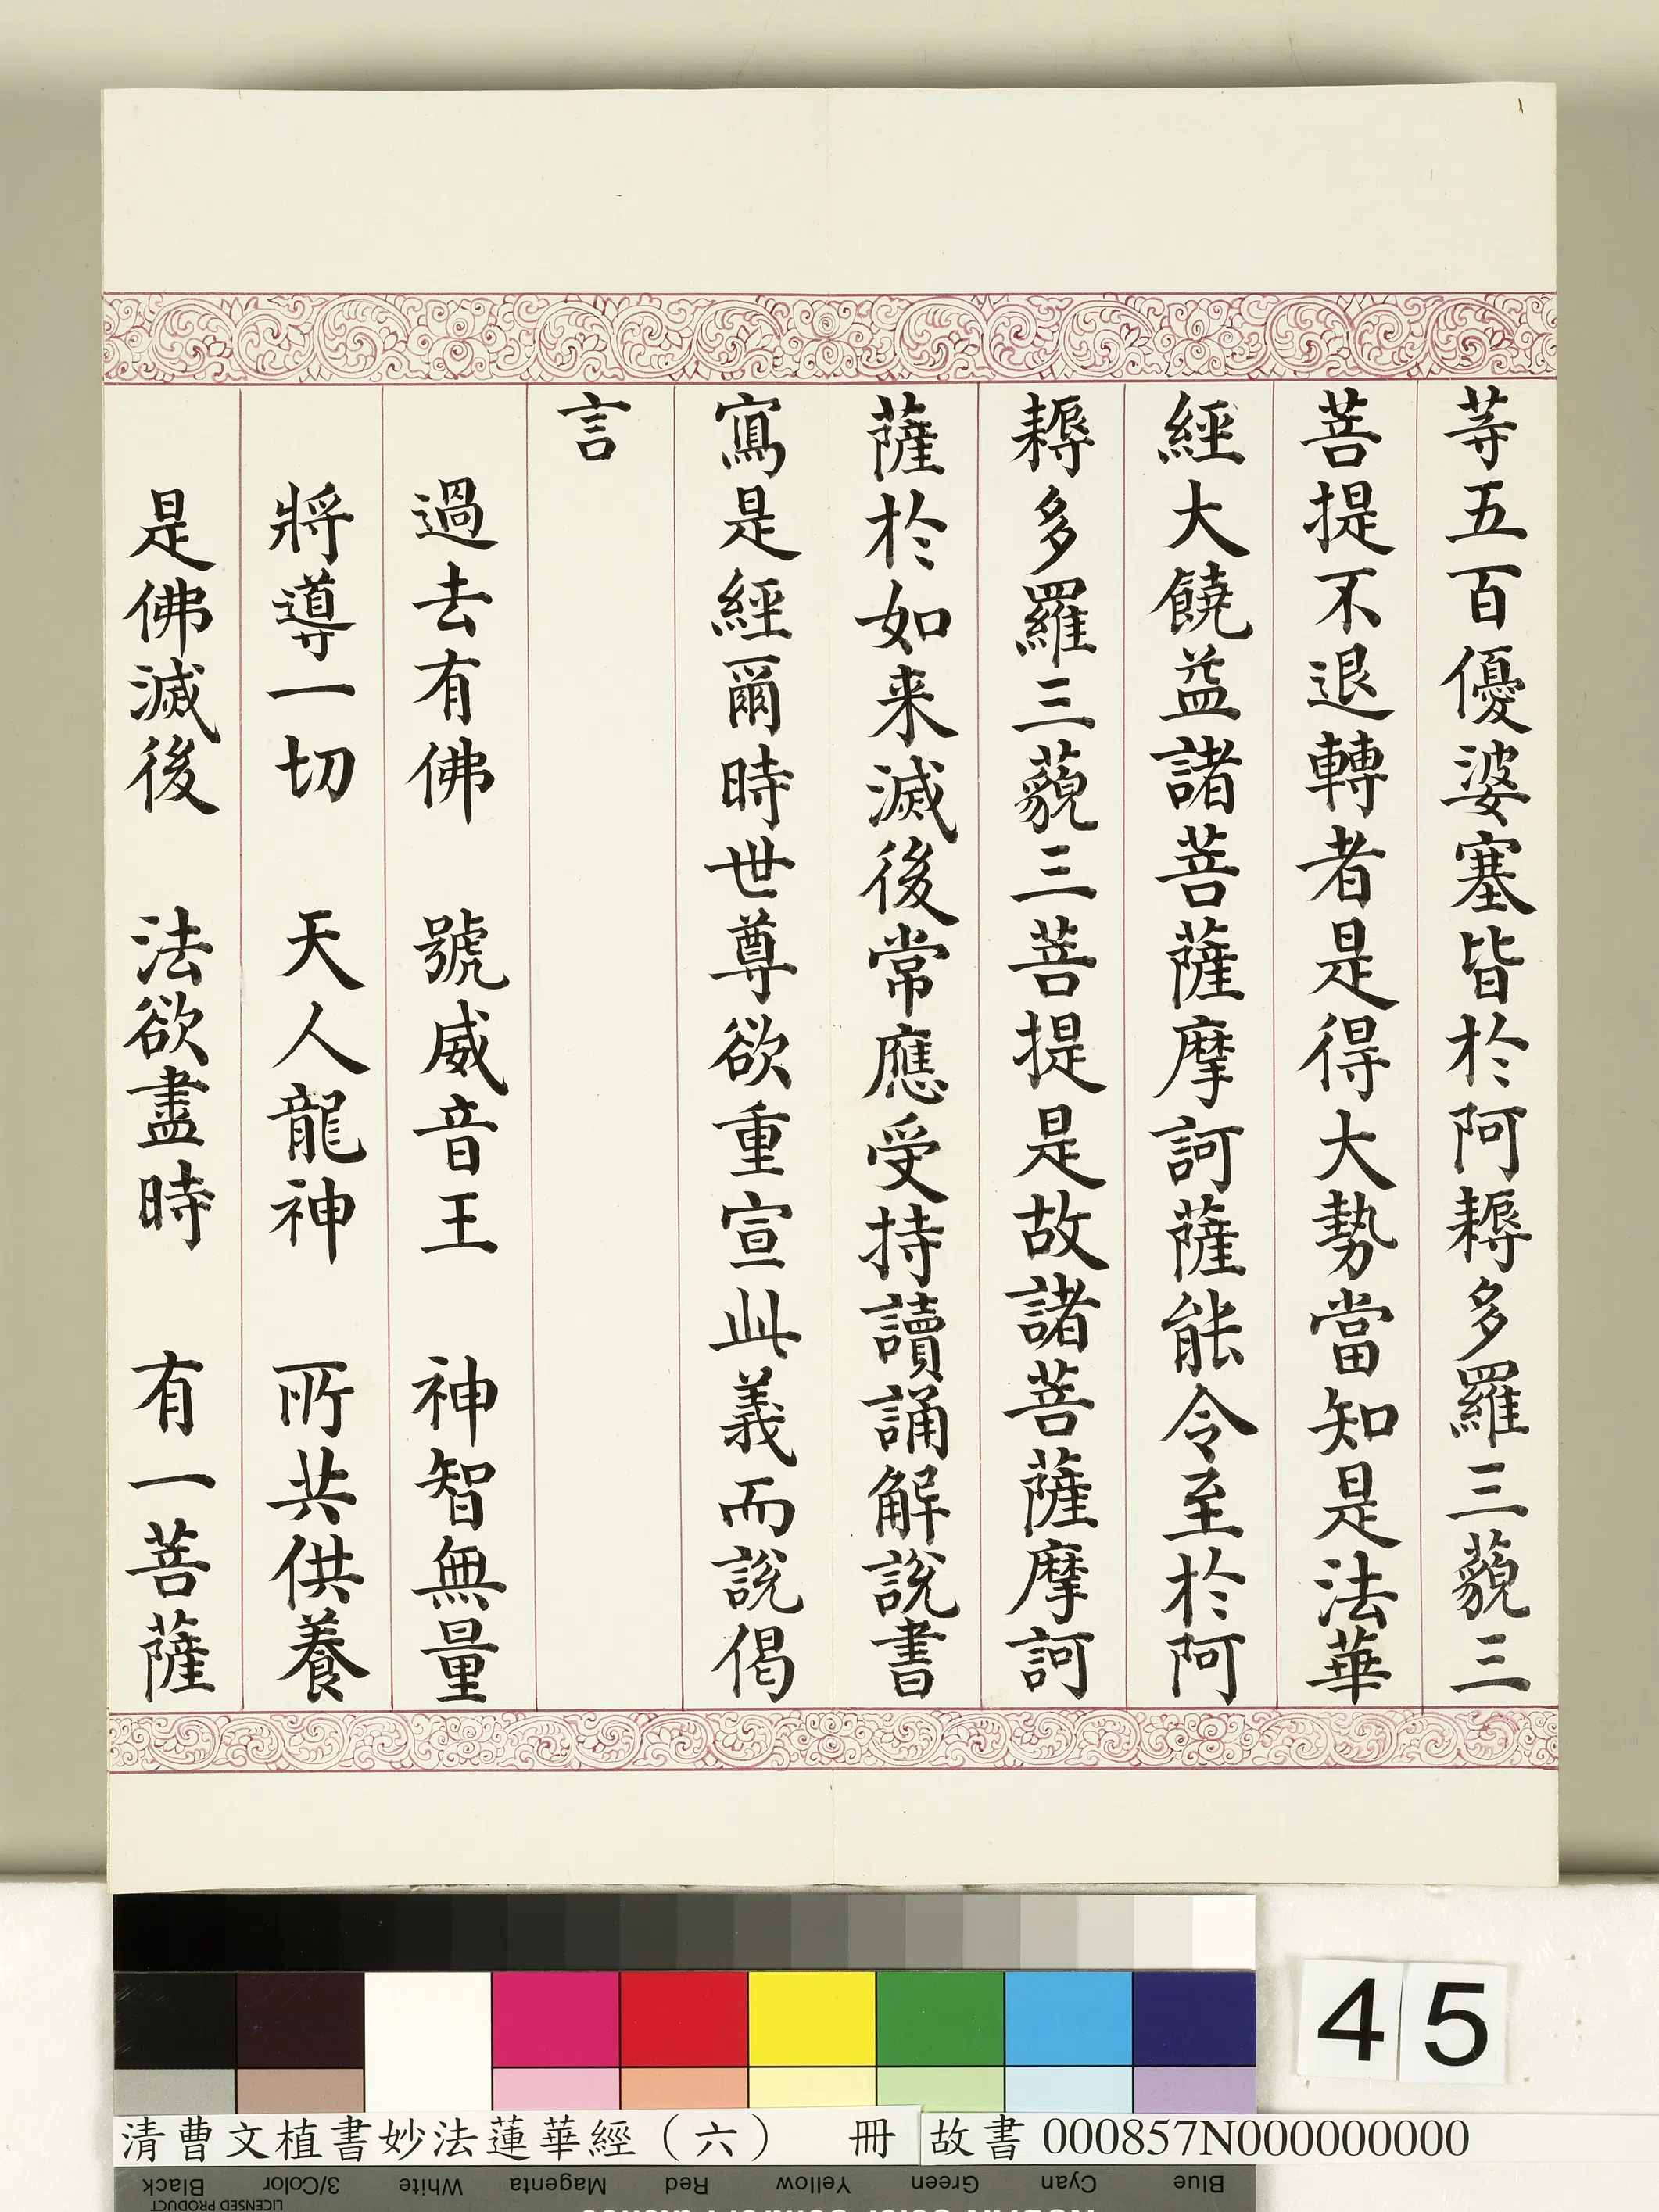 等五百優婆塞皆於阿耨多羅三藐三
菩提不退轉者是得大勢當知是法華
經大饒益諸菩薩摩訶薩能令至於阿
耨多羅三藐三菩提是故諸菩薩摩訶
薩於如来滅後常應受持讀誦解說書
寫是經爾時世尊欲重宣此義而說偈
言
過去有佛　號威音王　神智無量
將導一切　天人龍神　所共供養
是佛滅後　法欲盡時　有一菩薩
45
清曹文植書妙法蓮華經（六）　冊
故書 000857N000000000
Black 3/Color White Magenta Red Yellow Green Cyan Blue
LICENSED PRODUCT